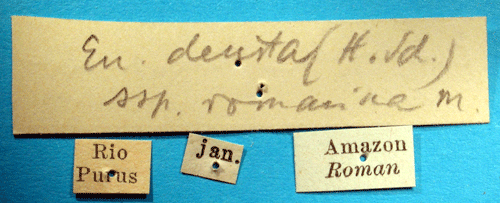 En. densta (H.Sd.)
ssp. romanina m.
Rio
Purus
jan.
Amazon
Roman